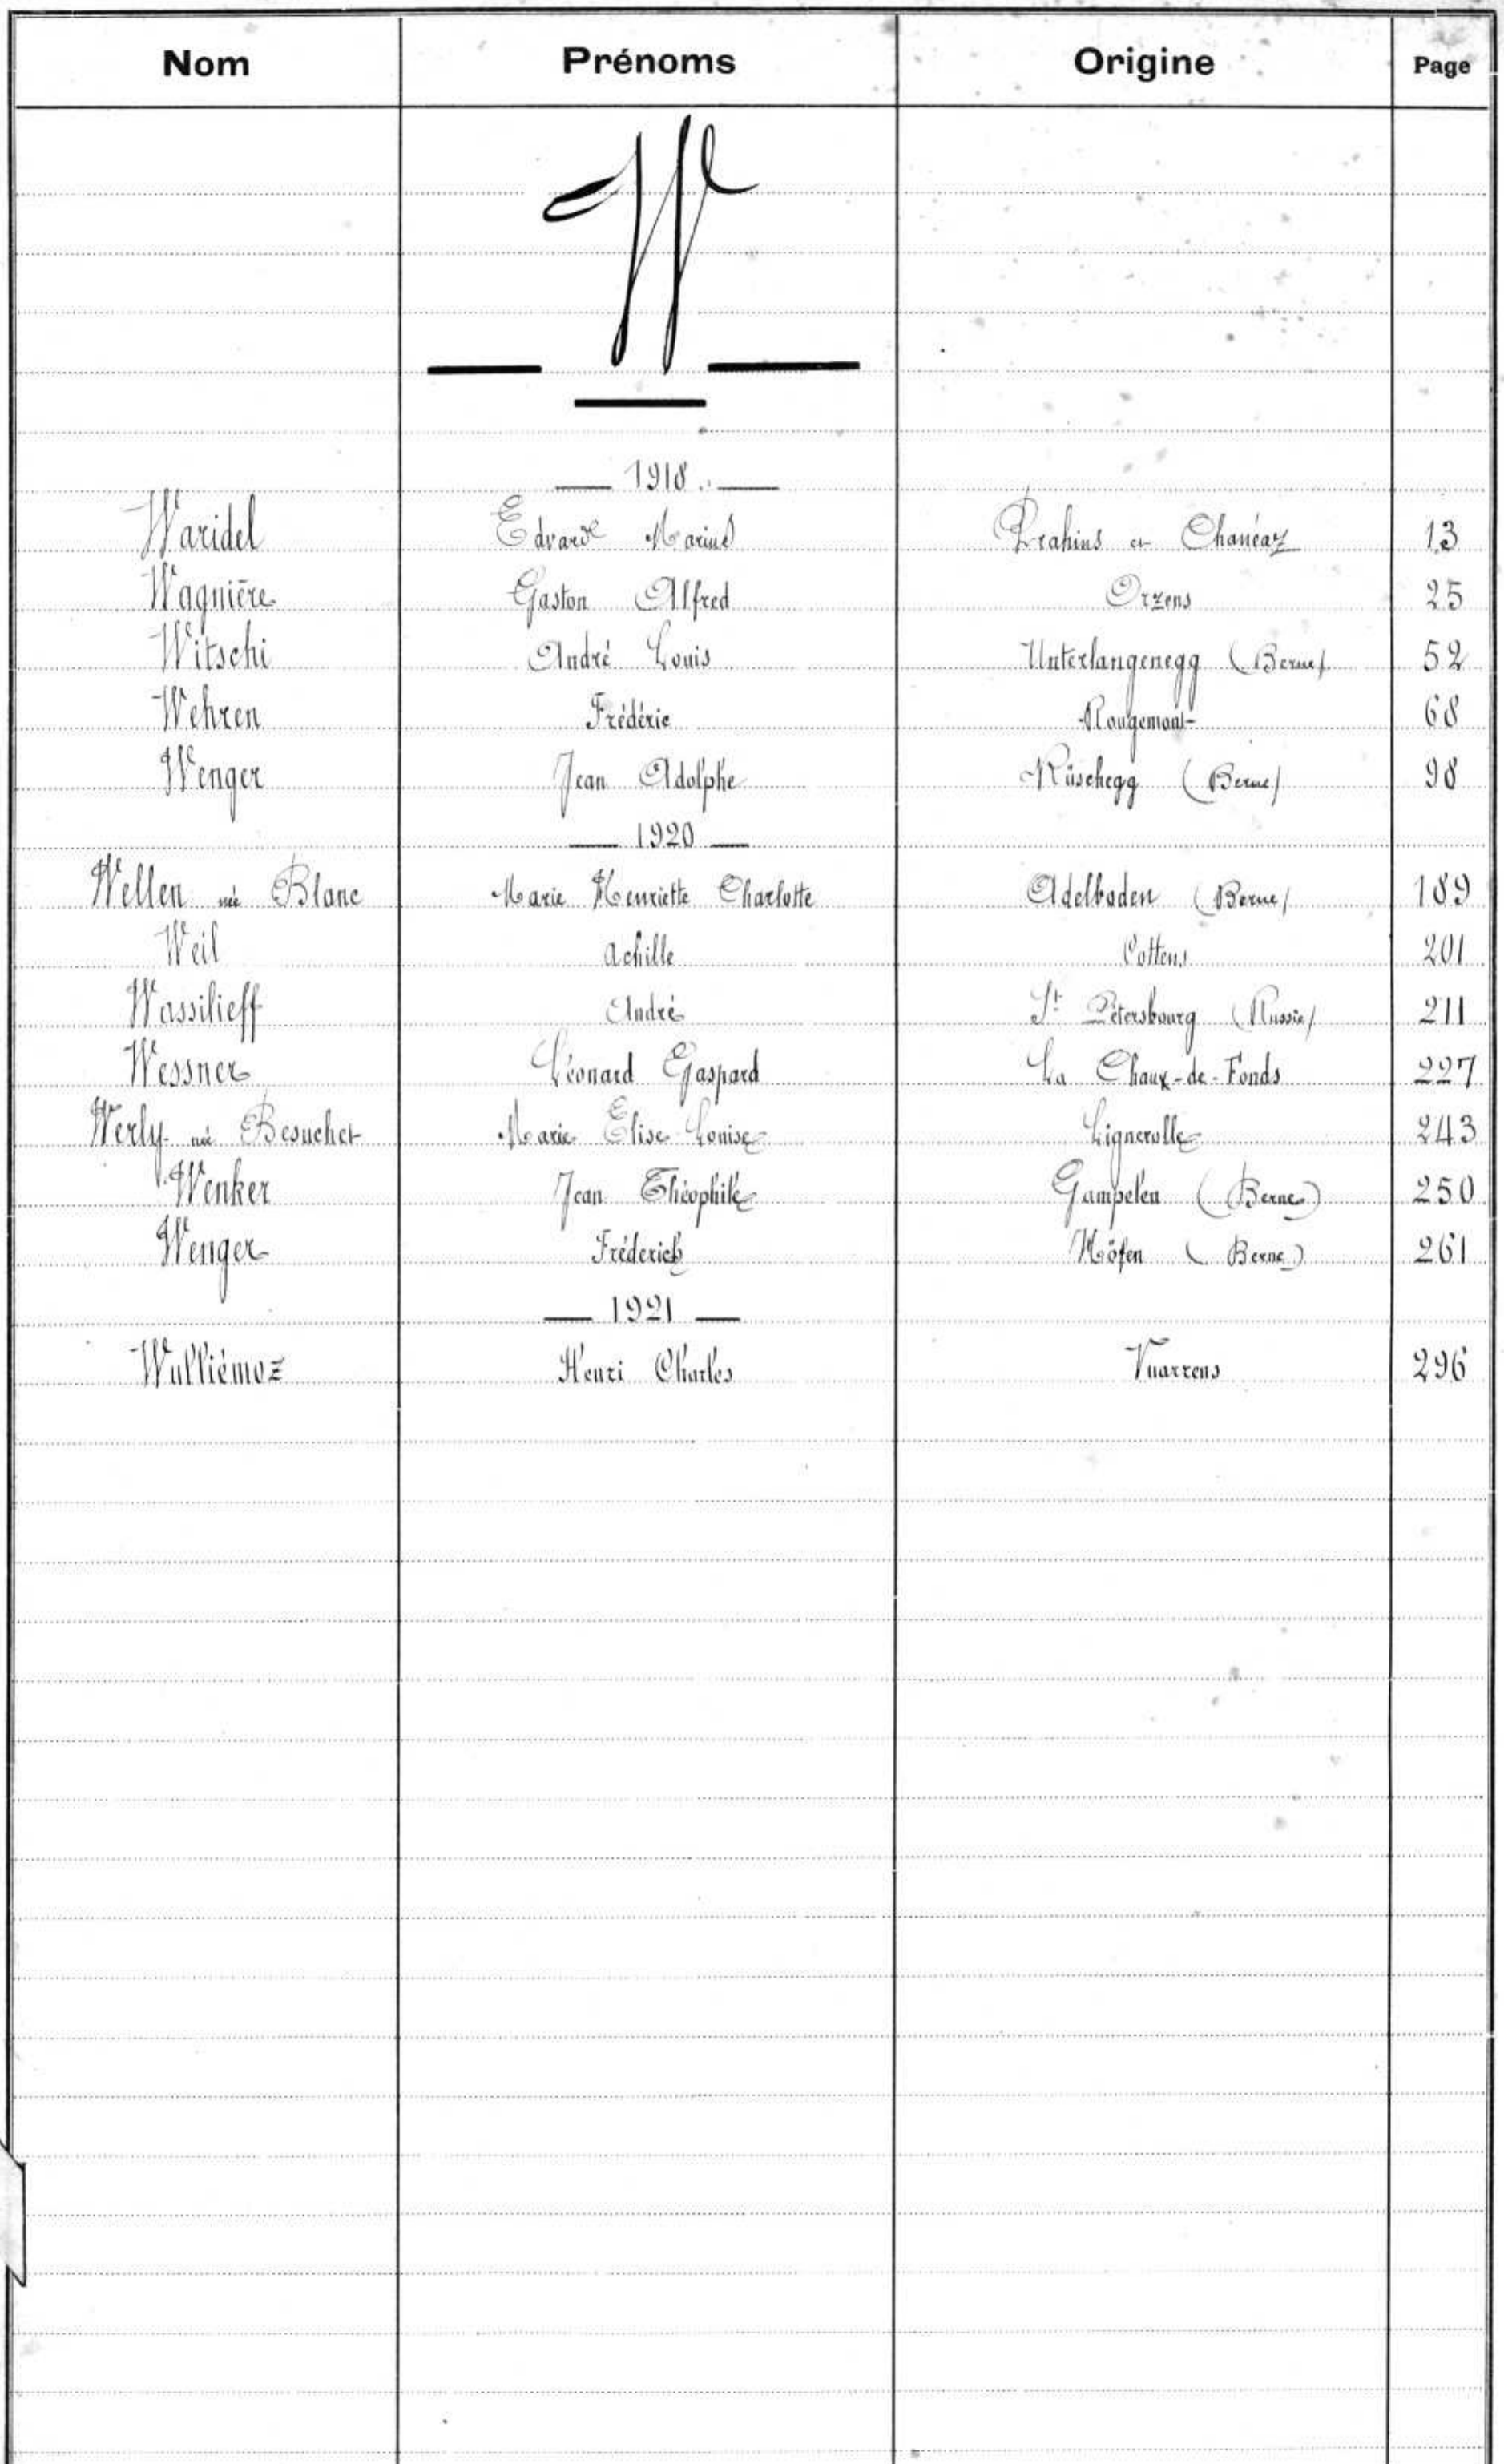 Nom Prénoms Origine Page
W
1918
Waridel Edvard Marius Prahins et Chanéaz 13
Wagnière Gaston Alfred Orzens 25
Witschi André Louis Unterlangenegg (Berne) 52
Wehren Frédéric Rougemont 68
Wenger Jean Adolphe Rüschegg (Berne) 98
1920
Wellen née Blanc Marie Henriette Charlotte Adelboden (Berne) 189
Weil Achille Cottens 201
Wassilieff André St Pétersbourg (Russie) 211
Wessner Léonard Gaspard La Chaux-de-Fonds 227
Werly née Besuchet Marie Elise Louise Lignerolle 243
Wenker Jean Théophile Gampelen (Berne) 250
Wenger Fréderich Höfen (Berne) 261
1921
Wulliémoz Henri Charles Vuarrens 296